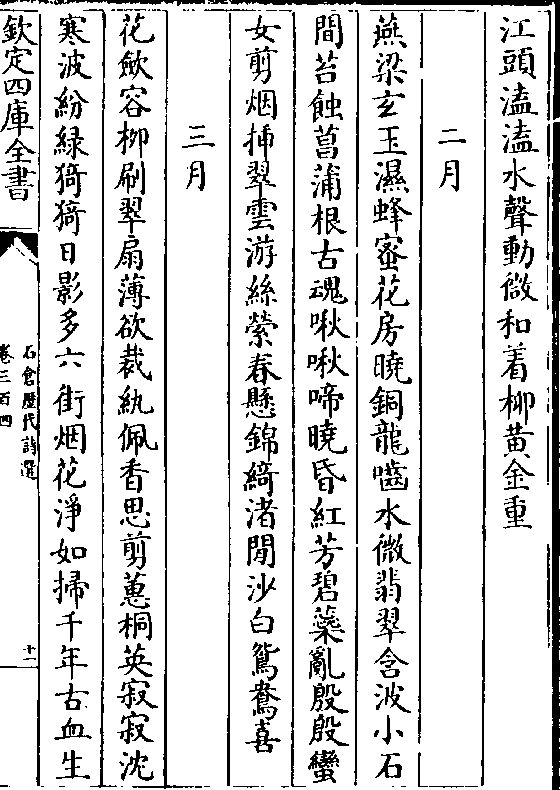 江頭溘溘水聲動微和着柳黃金重
二月
燕梁玄玉濕蜂蜜花房曉銅龍嚙水微翡翠含波小石
間苔蝕菖蒲根古魂啾啾啼曉昏紅芳碧蘂亂殷殷蠻
女剪烟揷翠雲游絲縈春懸錦綺渚閒沙白鴛鴦喜
三月
花斂容柳刷翠扇薄欲裁紈佩香思剪蕙桐英寂寂沈
寒波紛緑猗猗日影多六街烟花淨如掃千年古血生
欽定四庫全書
石倉歷代詩選
卷三百四
十一